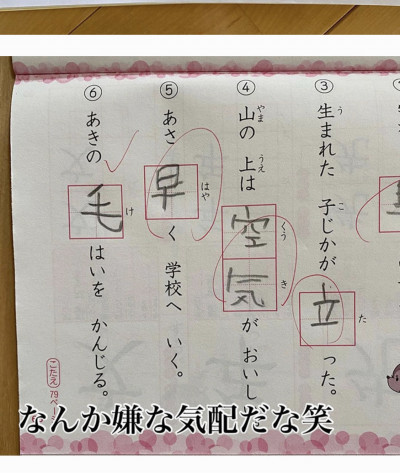 ③ 生まれた 子じかが 立った。
う
こ
た
④ 山の 上は 空気が おいし
やま
うえ
くう
き
⑤ あさ 早く 学校へ いく。
はや
⑥ あきの 毛はいを かんじる。
け
こたえ 79ペー
なんか嫌な気配だな笑